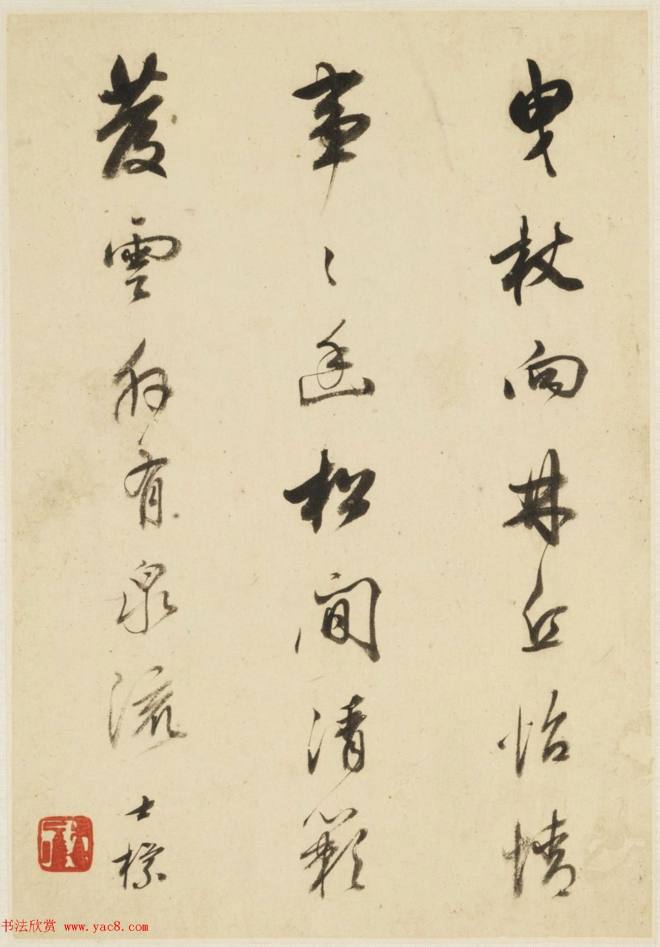 曳杖向林丘怡情
事〻幽松間清籟
發雲外有泉流
士標
书法欣赏 www.yac8.com